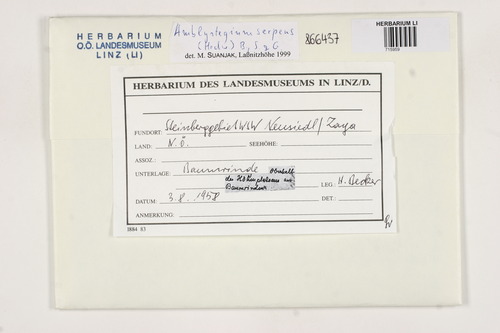 HERBARIUM
O.Ö. LANDESMUSEUM
LINZ (LI)
Amblystegium serpens
(Hedw.) B, S & G
det. M. SUANJAK, Laßnitzhöhe 1999
866437
HERBARIUM LI
HERBARIUM DES LANDESMUSEUMS IN LINZ/D.
FUNDORT: Steinberggebiet WSW Neusiedl/Zaya
LAND: N.Ö. SEEHÖHE:
ASSOZ.:
UNTERLAGE: Baumrinde oberhalb
der
LEG.: H. Becker
DATUM: 3.8.1958 DET.:
ANMERKUNG:
1884 83